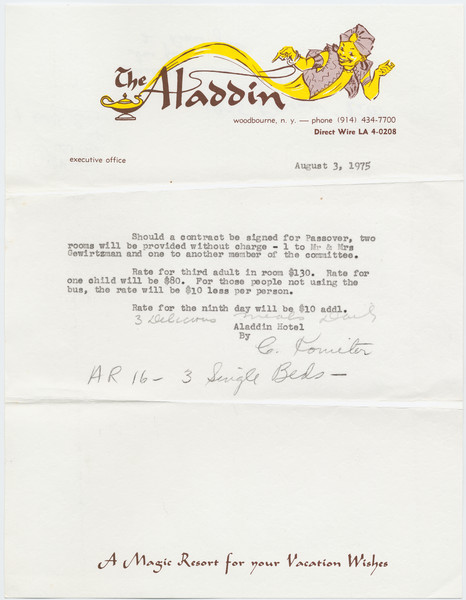 The Aladdin
woodbourne, n. y. — phone (914) 434-7700
Direct Wire LA 4-0208
executive office
August 3, 1975
Should a contract be signed for Passover, two
rooms will be provided without charge - 1 to Mr & Mrs
Gewirtzman and one to another member of the committee.
Rate for third adult in room $130. Rate for
one child will be $80. For those people not using the
bus, the rate will be $10 less per person.
Rate for the ninth day will be $10 addl.
3 Delicious meals Daily
Aladdin Hotel
By
C. Komiter
AR 16 - 3 Single Beds -
A Magic Resort for your Vacation Wishes